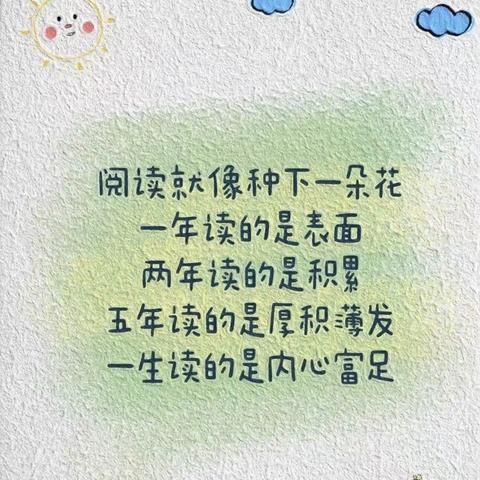 阅读就像种下一朵花
一年读的是表面
两年读的是积累
五年读的是厚积薄发
一生读的是内心富足